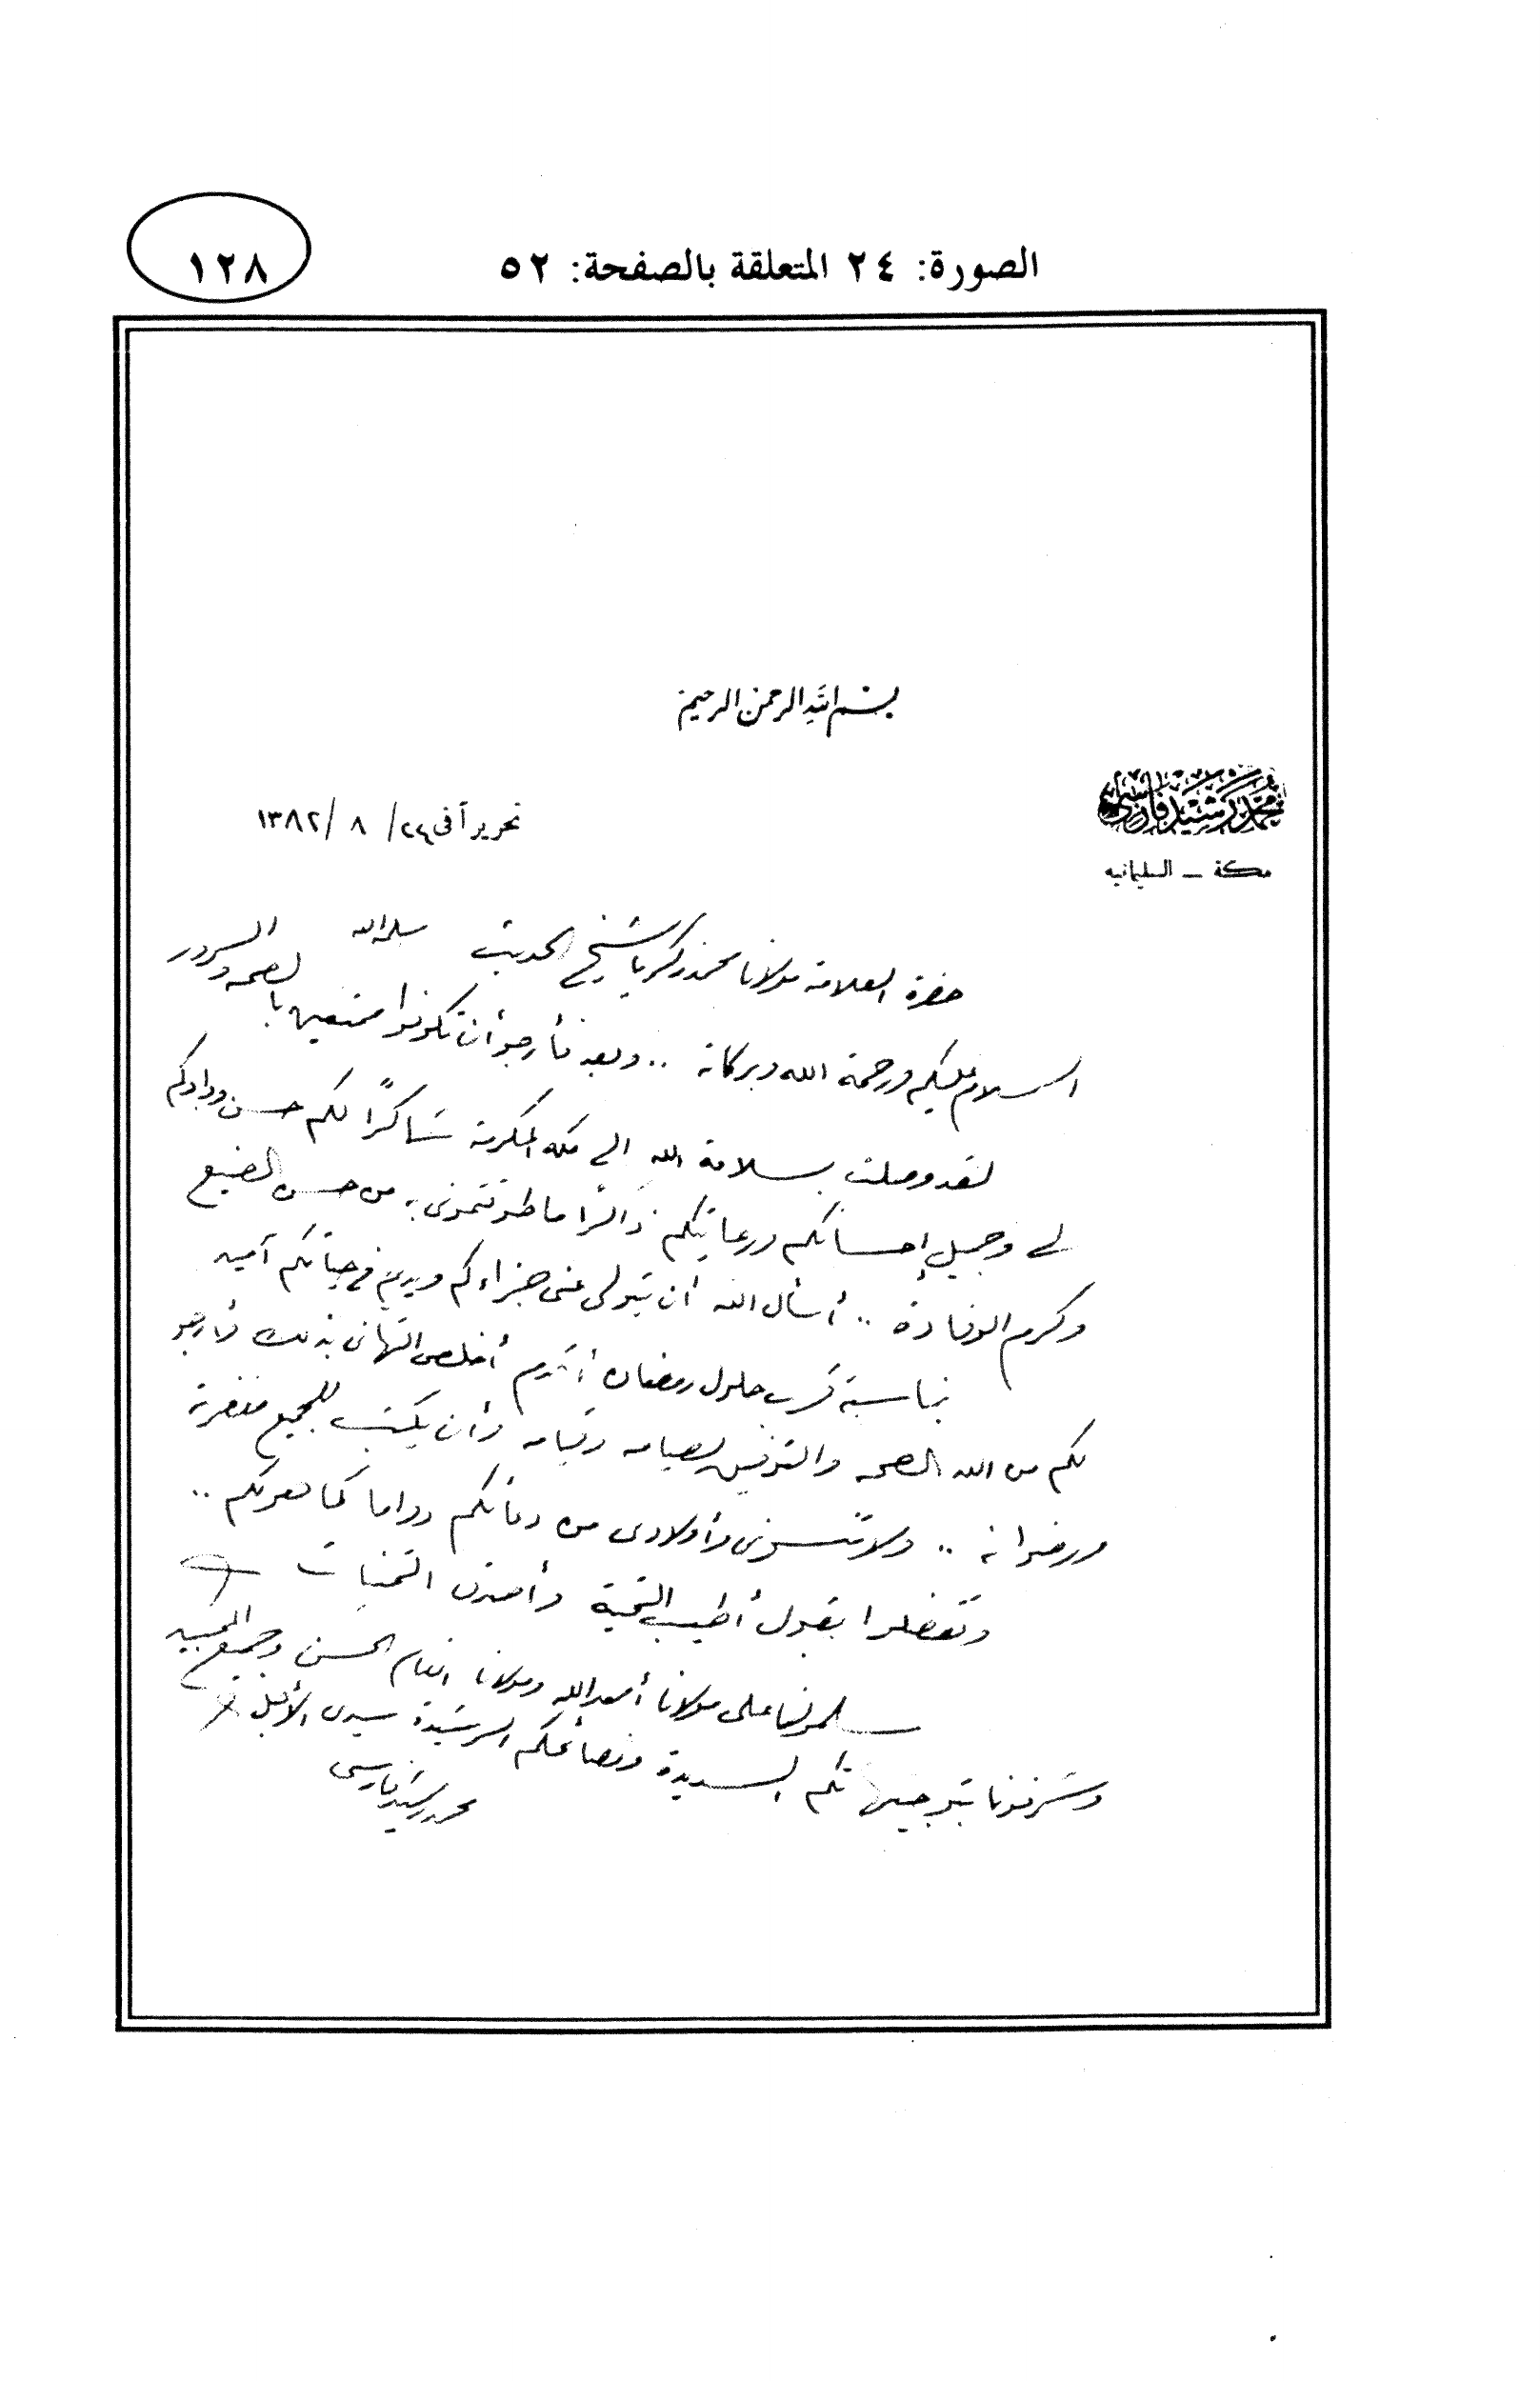 ١٢٨
الصورة: ٢٤ المتعلقة بالصفحة: ٥٢
بسم الله الرحمن الرحيم
محمد رشيد فارسي
مكة - السليمانيه
تحريرآ فى ٢٤/ ٨ /١٣٨٢
حضرة العلامة مولانا محمد زكريا شيخ الحديث سلمه الله
السلام عليكم ورحمة الله وبركاته .. وبعد فأرجو أن تكونوا متمتعين بالصحه والسرور
لقد وصلت بسلامة الله الى مكه المكرمة شاكرًا لكم حسن ودادكم
لى وجميل إحسانكم ورعايتكم ذاكرًا ما طوقتمونى به من حسن الصنيع
وكرم الوفادة .. أسأل الله أن يتولى عنى جزاءكم ويديم فى حياتكم آمين
بمناسبة قرب حلول رمضان أقدم أخلص التهانى بذلك فأرجو
لكم من الله الصحه والتوفيق لصيامه وقيامه وأن يكتب للجميع مغفرته
ورضوانه .. ولا تنسونى وأولادى من دعائكم دواما كما نعودكم ..
وتفضلوا بقبول أطيب التحية وأصدق التمنيات
سلمولنا على مولانا أسعد الله ومولانا انعام الحسن وجميع المحبين
وشرفونا بتوجيهاتكم السديدة ونصائحكم الرشيدة سيدى الأجل
محمد رشيد فارسى